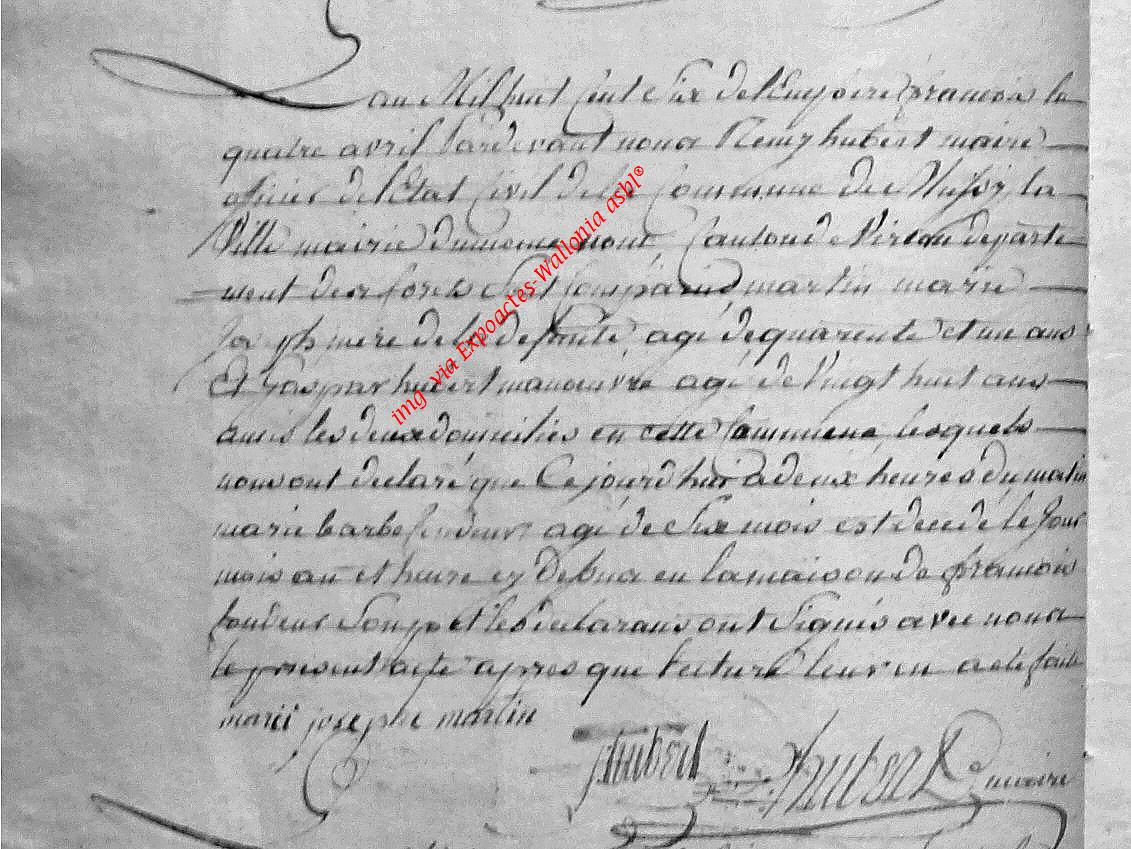 L an Mil huit Cent Six de l'Empire francois le
quatre avril Pardevant nous Remy hubert maire
officier de l'Etat Civil de la Commune de Mussy la
Ville mairie du meme nom, Canton de Virton departe
ment des forets Sont Comparus martin marie
Joseph mere de la defunte agé de quarente et un ans
Et Gaspar hubert manoeuvre agé de Vingt huit ans
amis les deux domicilies en cette Commune, lesquels
nous ont declaré que Ce jourd'hui a deux heures du matin
marie barbe agé de Six mois est decedé le Jour
mois an et heure cy Dessus en la maison de francois
Son et les declarans ont Signés avec nous
le present acte apres que lecture leur en a eté faite
marie josephe martin
hubert hubert maire
img via Expoactes-Wallonia asbl®